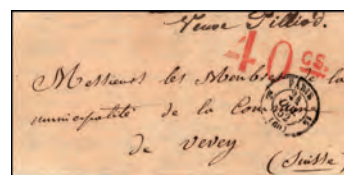 Veuve Pilliod.
40 cs.
Messieurs les Membres de la
municipalité de la Commune
de Vevey
(Suisse)
PARIS